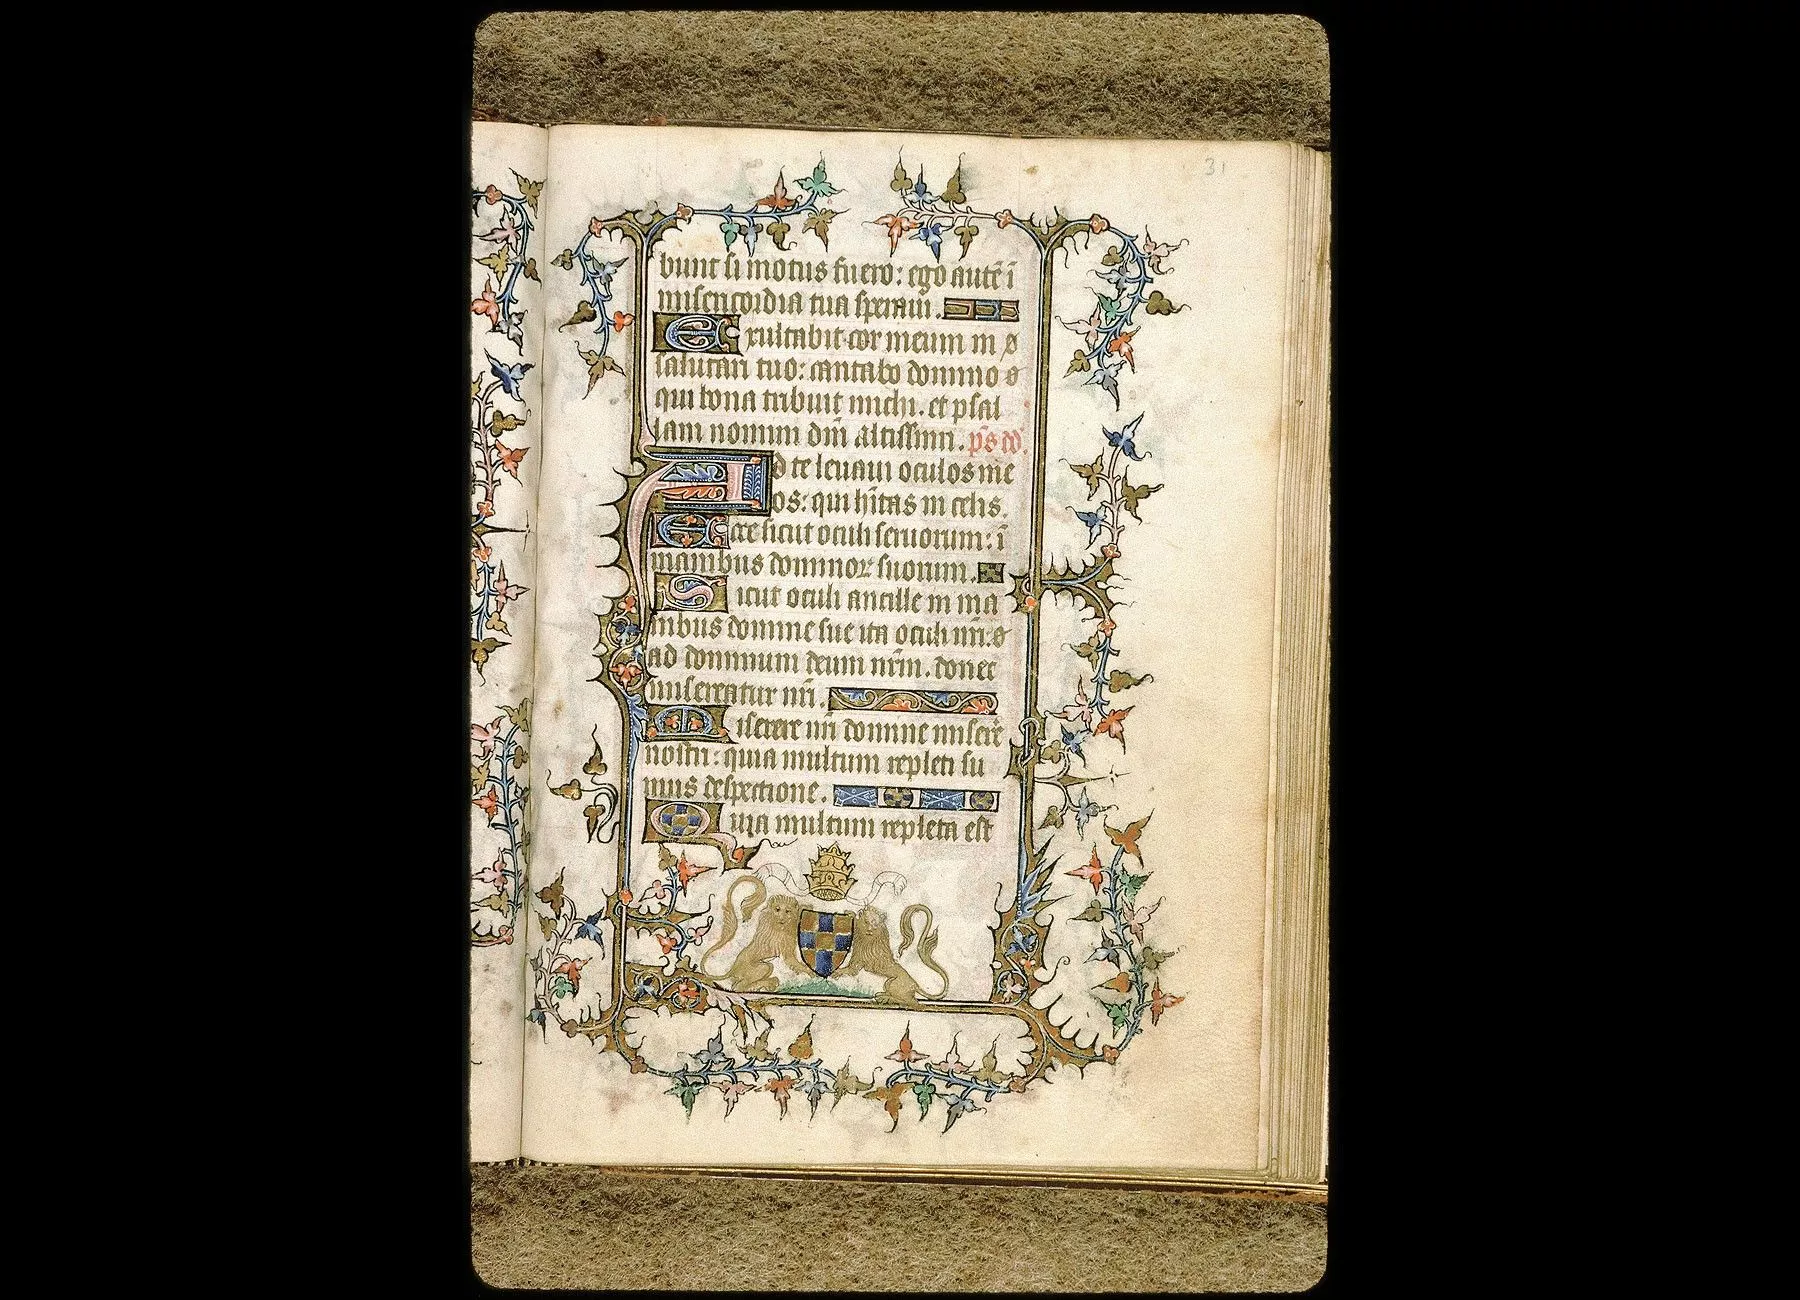 31
bunt si motus fuero: ego autē ī
misericordia tua speraui.
Exultabit cor meum in
salutari tuo: cantabo domino
qui bona tribuit michi. et psal
lam nomini dn̄i altissimi. p̄s dd̄.
Ad te leuaui oculos me
os: qui hītas in celis.
Ecce sicut oculi seruorum: ī
manibus dominoꝝ suorum.
Sicut oculi ancille in ma
nibus domine sue ita oculi nr̄i:
ad dominum deum nr̄m. donec
misereatur nr̄i.
Miserere nr̄i domine miserē
nostri: quia multum repleti su
mus despectione.
Quia multum repleta est